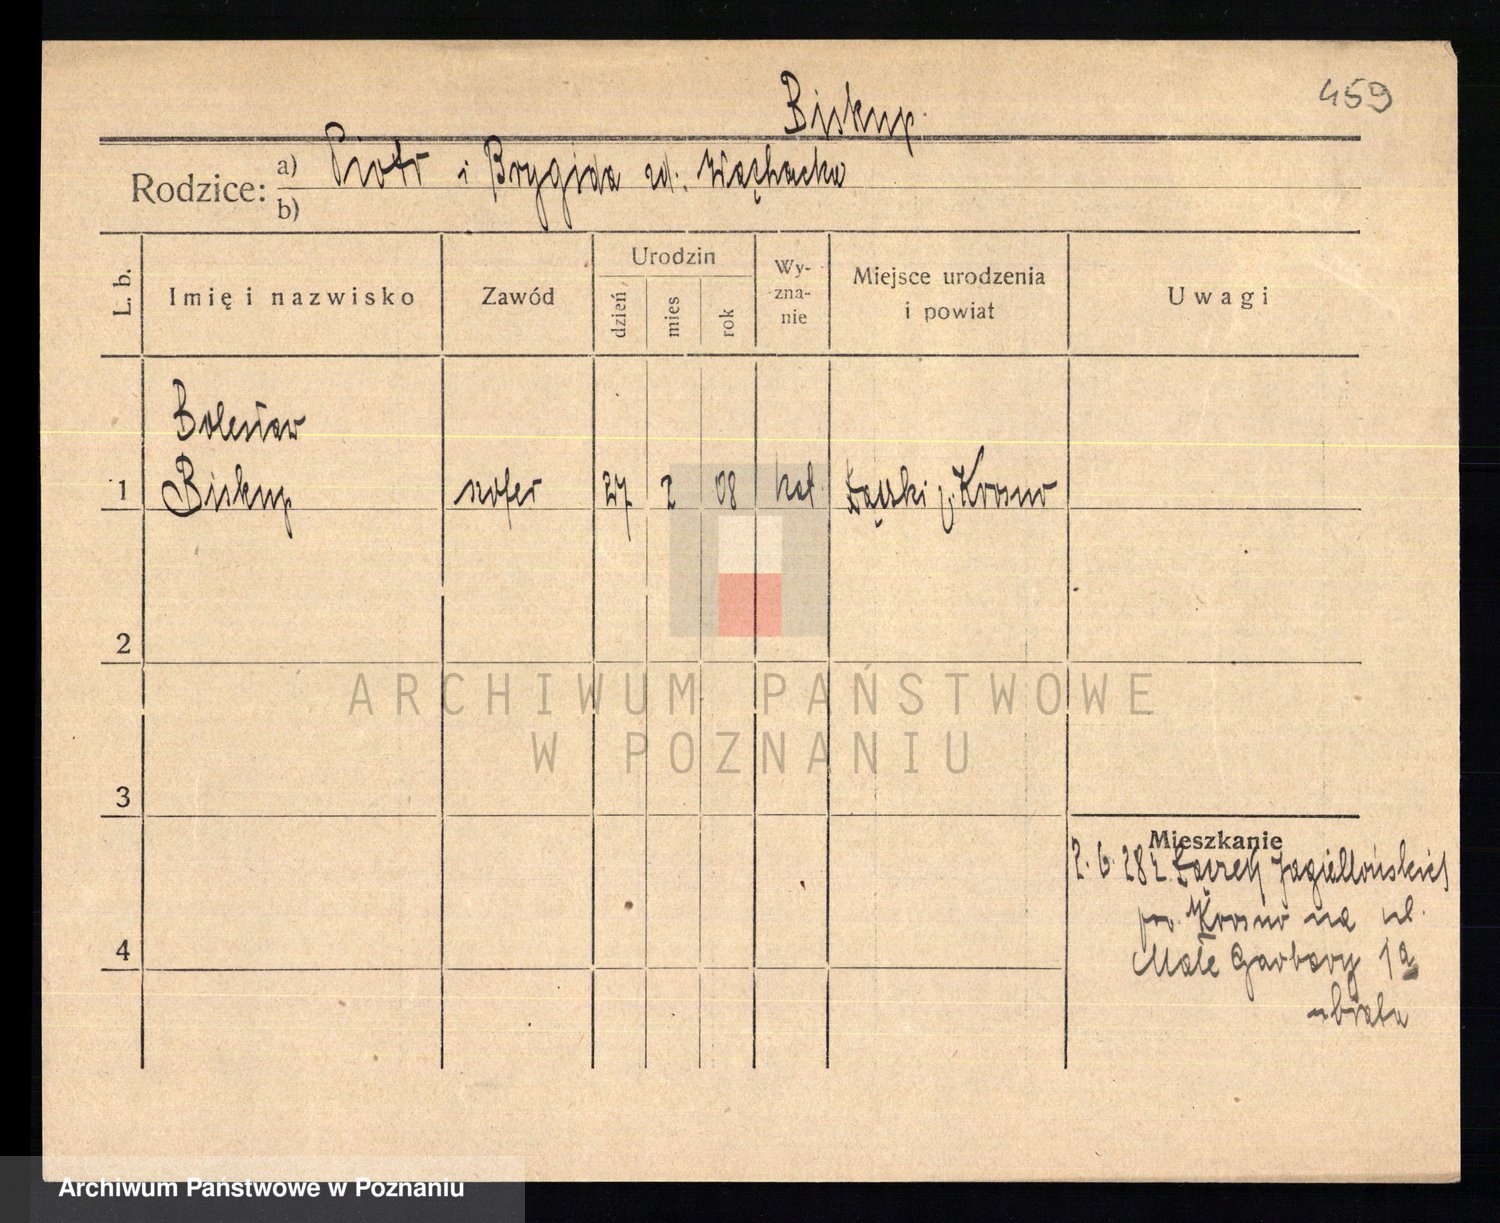 459
Biskup.
Rodzice: a) Piotr i Brygida zd.
b)
L. b.
Imię i nazwisko
Zawód
Urodzin
dzień
mies
rok
Wy-
zna-
nie
Miejsce urodzenia
i powiat
Uwagi
Bolesław
1 Biskup szofer 27 2 08 kat. Łęczki p. Krosno
2
ARCHIWUM PAŃSTWOWE
W POZNANIU
3
Mieszkanie
2. 6. 28 z Jagiellońskich
pow. Krosno na ul.
Małe Garbary 1a
4
Archiwum Państwowe w Poznaniu